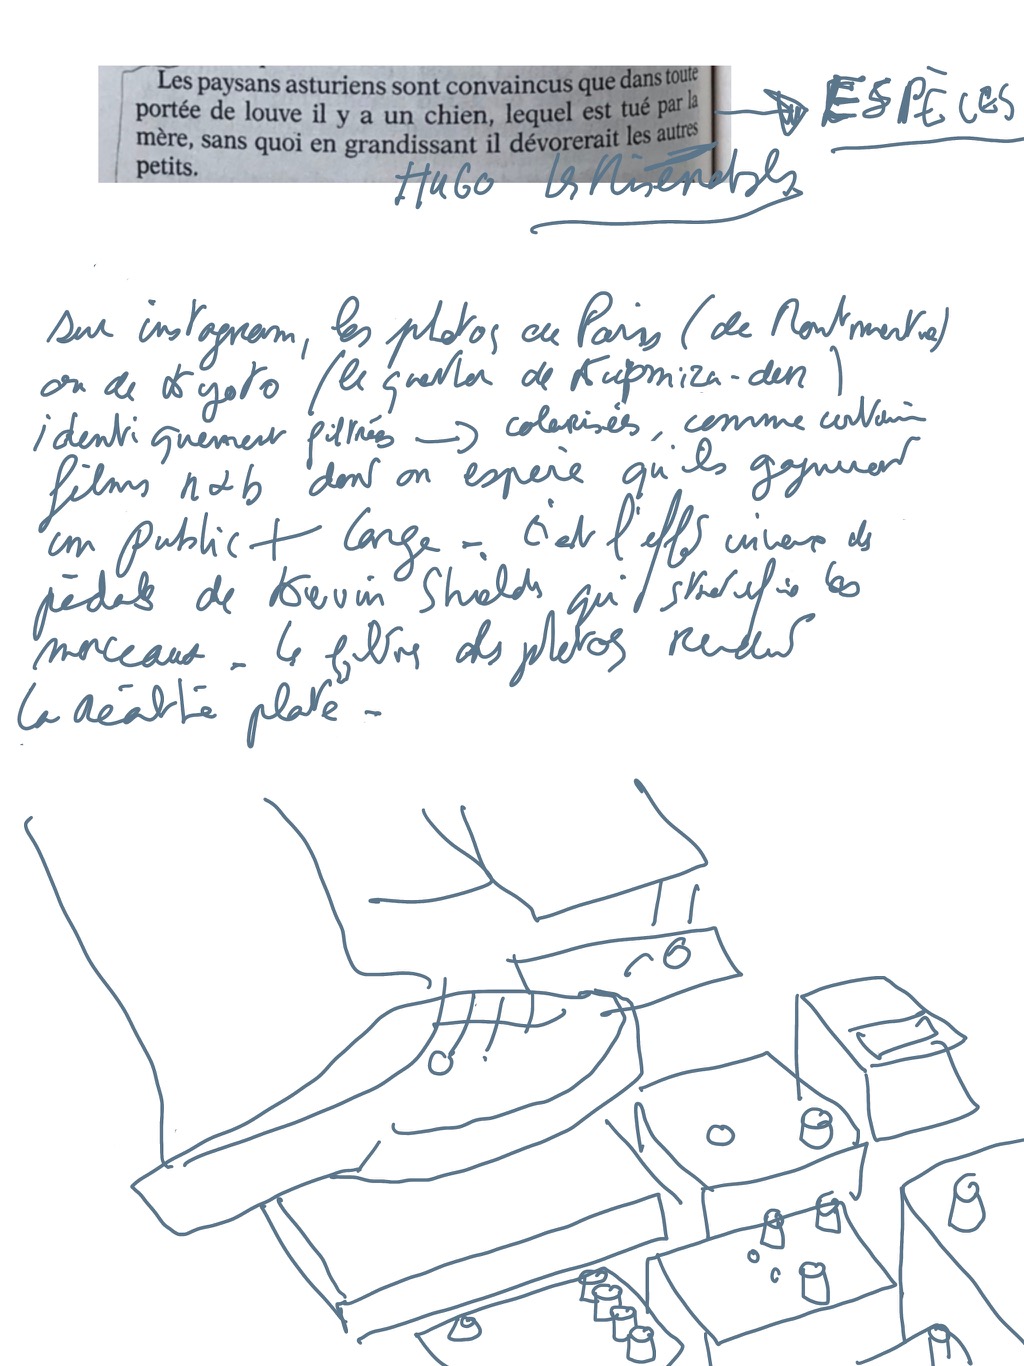 Les paysans asturiens sont convaincus que dans toute
portée de louve il y a un chien, lequel est tué par la
mère, sans quoi en grandissant il dévorerait les autres
petits.
ESPÈCES
HUGO Les Misérables
sur instagram, les photos de Paris (de Montmartre)
ou de Kyoto (le quartier de
identiquement filtrées → colorisées, comme certains
films n&b dont on espère qu'ils gagneront
un public + large -. C'est l'effet inverse des
pédales de Kevin Shields qui stratifie les
morceaux - Le filtre des photos rendent
la réalité plate -